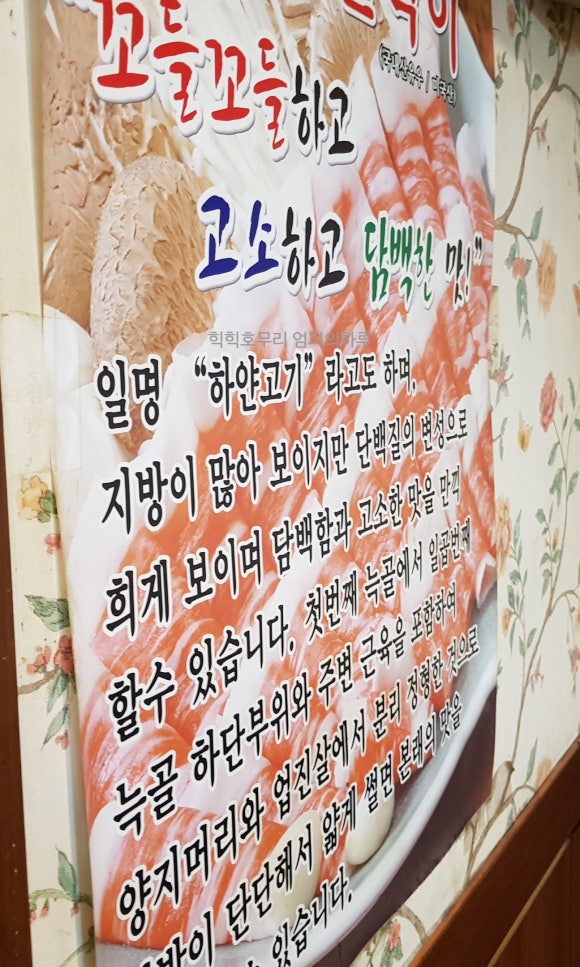 꼬들꼬들하고
고소하고 담백한 맛!"
힉힉호무리
일명 "하얀고기" 라고도 하며,
지방이 많아 보이지만 단백질의 변성으로
희게 보이며 담백함과 고소한 맛을 만끽
할수 있습니다. 첫번째 늑골에서 일곱번째
늑골 하단부위와 주변 근육을 포함하여
양지머리와 업진살에서 분리 정형한 것으로
단단해서 얇게 썰면 본래의 맛을
있습니다.